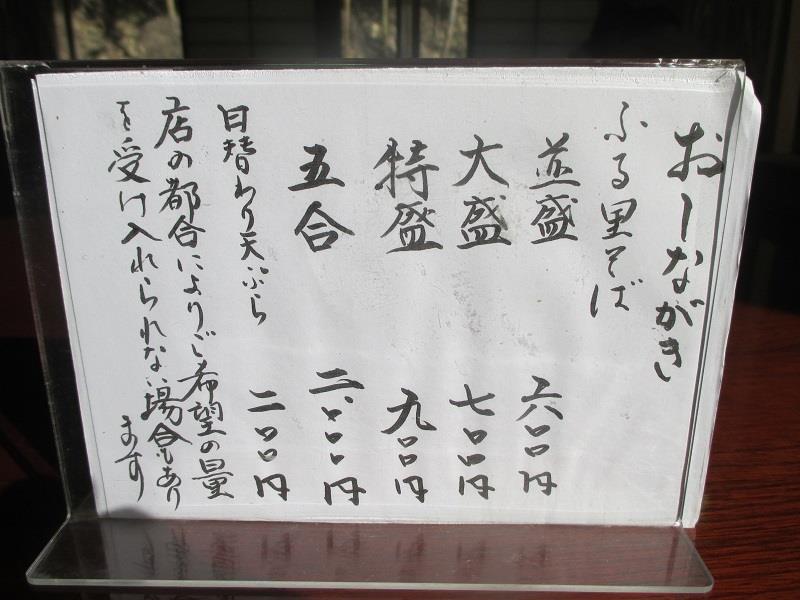 おしながき
ふる里そば
並盛 六〇〇円
大盛 七〇〇円
特盛 九〇〇円
五合 二、〇〇〇円
日替わり天ぷら 二〇〇円
店の都合によりご希望の量
を受け入れられない場合もあり
ます